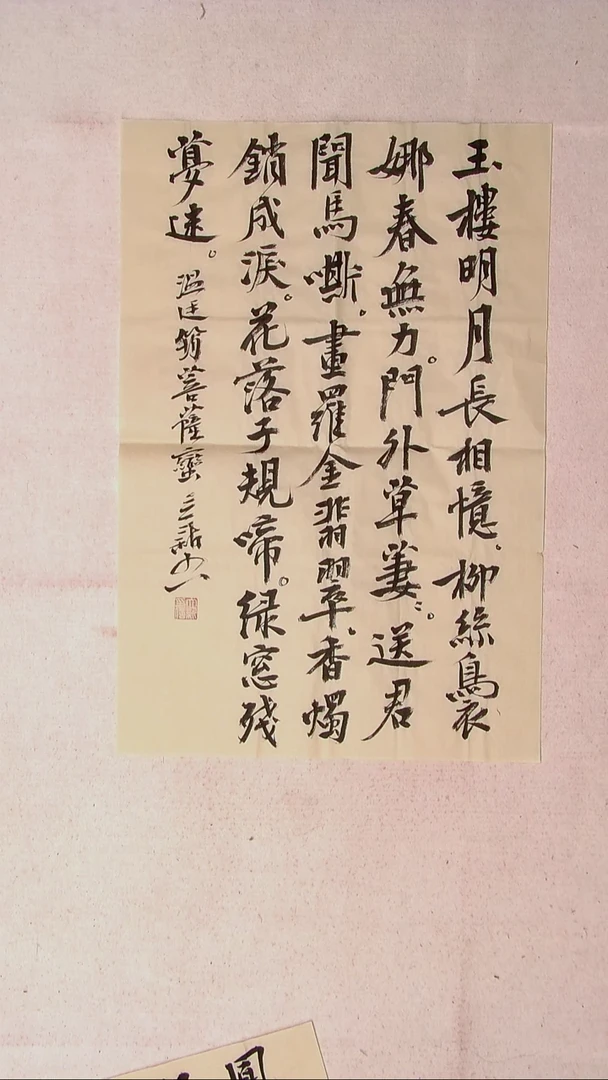 玉樓明月長相憶.柳絲裊
娜春無力。門外草萋〻。送君
聞馬嘶。畫羅金翡翠.香燭
銷成淚。花落子規啼。綠窓殘
夢迷。溫廷筠菩薩蠻
圓